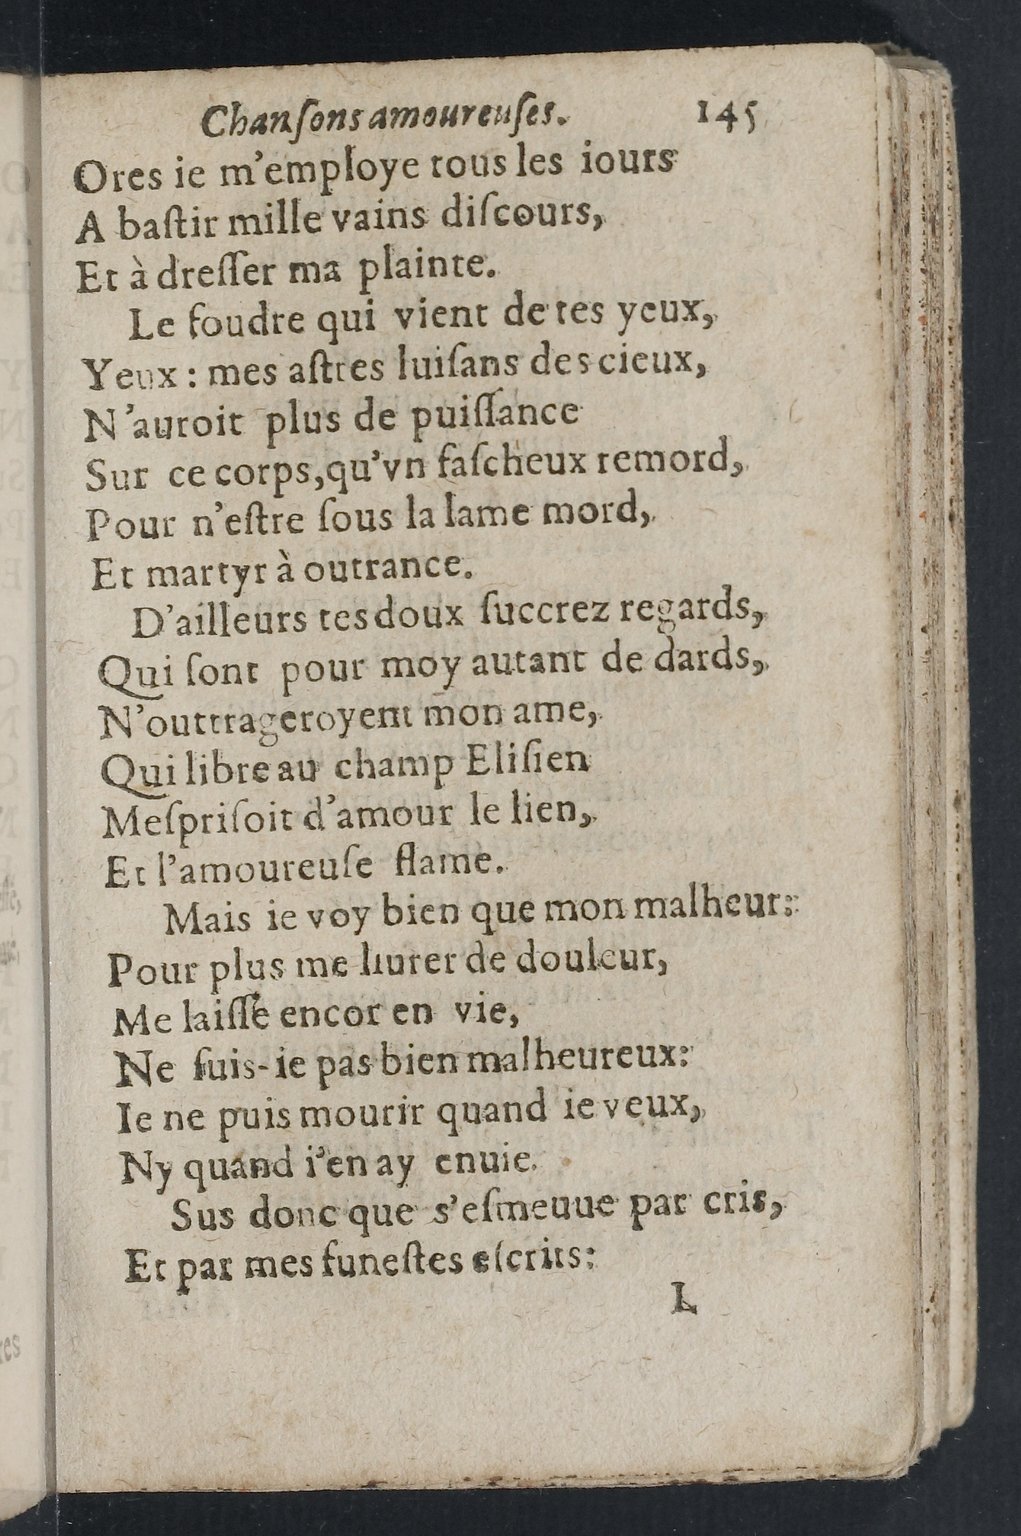 Chanſons amoureuſes. 145
Ores ie m'employe tous les iours
A baſtir mille vains diſcours,
Et à dreſſer ma plainte.
Le foudre qui vient de tes yeux,
Yeux : mes aſtres luiſans des cieux,
N'auroit plus de puiſſance
Sur ce corps, qu'vn faſcheux remord,
Pour n'eſtre ſous la lame mord,
Et martyr à outrance.
D'ailleurs tes doux ſuccrez regards,
Qui ſont pour moy autant de dards,
N'outtrageroyent mon ame,
Qui libre au champ Eliſien
Meſpriſoit d'amour le lien,
Et l'amoureuſe flame.
Mais ie voy bien que mon malheur:
Pour plus me liurer de douleur,
Me laiſſe encor en vie,
Ne ſuis-ie pas bien malheureux:
Ie ne puis mourir quand ie veux,
Ny quand i'en ay enuie.
Sus donc que s'eſmeuue par cris,
Et par mes funeſtes eſcrits:
L